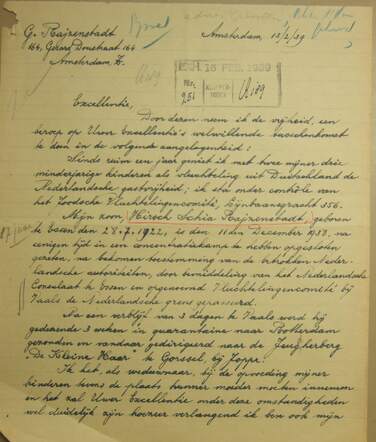 G. Rajzenstadt
164, Gerard Doustraat 164
Amsterdam, Z.
Amsterdam, 15/2/39
16 FEB. 1939
Excellentie,
Door dezen neem ik de vrijheid, een
beroep op Uwer Excellentie's welwillende tusschenkomst
te doen in de volgende aangelegenheid:
Sinds ruim een jaar geniet ik met twee mijner drie
minderjarige kinderen als vluchteling uit Duitschland de
Nederlandsche gastvrijheid; ik sta onder contrôle van
het Joodsche Vluchtelingencomité, Lijnbaansgracht 366.
Mijn zoon, Hirsch Schia Rajzenstadt, geboren
17 jaar
te Essen den 28.7.1922, is den 11den December 1938, na
eenigen tijd in een concentratiekamp te hebben opgesloten
gezeten, na bekomen toestemming van de betrokken Neder-
landsche autoriteiten, door bemiddeling van het Nederlandsche
Consulaat te Essen en opgenoemd Vluchtelingencomité bij
Vaals de Nederlandsche grens gepasseerd.
Na een verblijf van 3 dagen te Vaals werd hij
gedurende 3 weken in quarantaine naar Rotterdam
gezonden en vandaar gedirigeerd naar de Jeugherberg
"De Kleine Haar" te Gorssel, bij Joppe.
Ik heb, als weduwnaar, bij de opvoeding mijner
kinderen tevens de plaats hunner moeder moeten innemen
en het zal Uwer Excellentie onder deze omstandigheden
wel duidelijk zijn hoezeer verlangend ik ben ook mijn